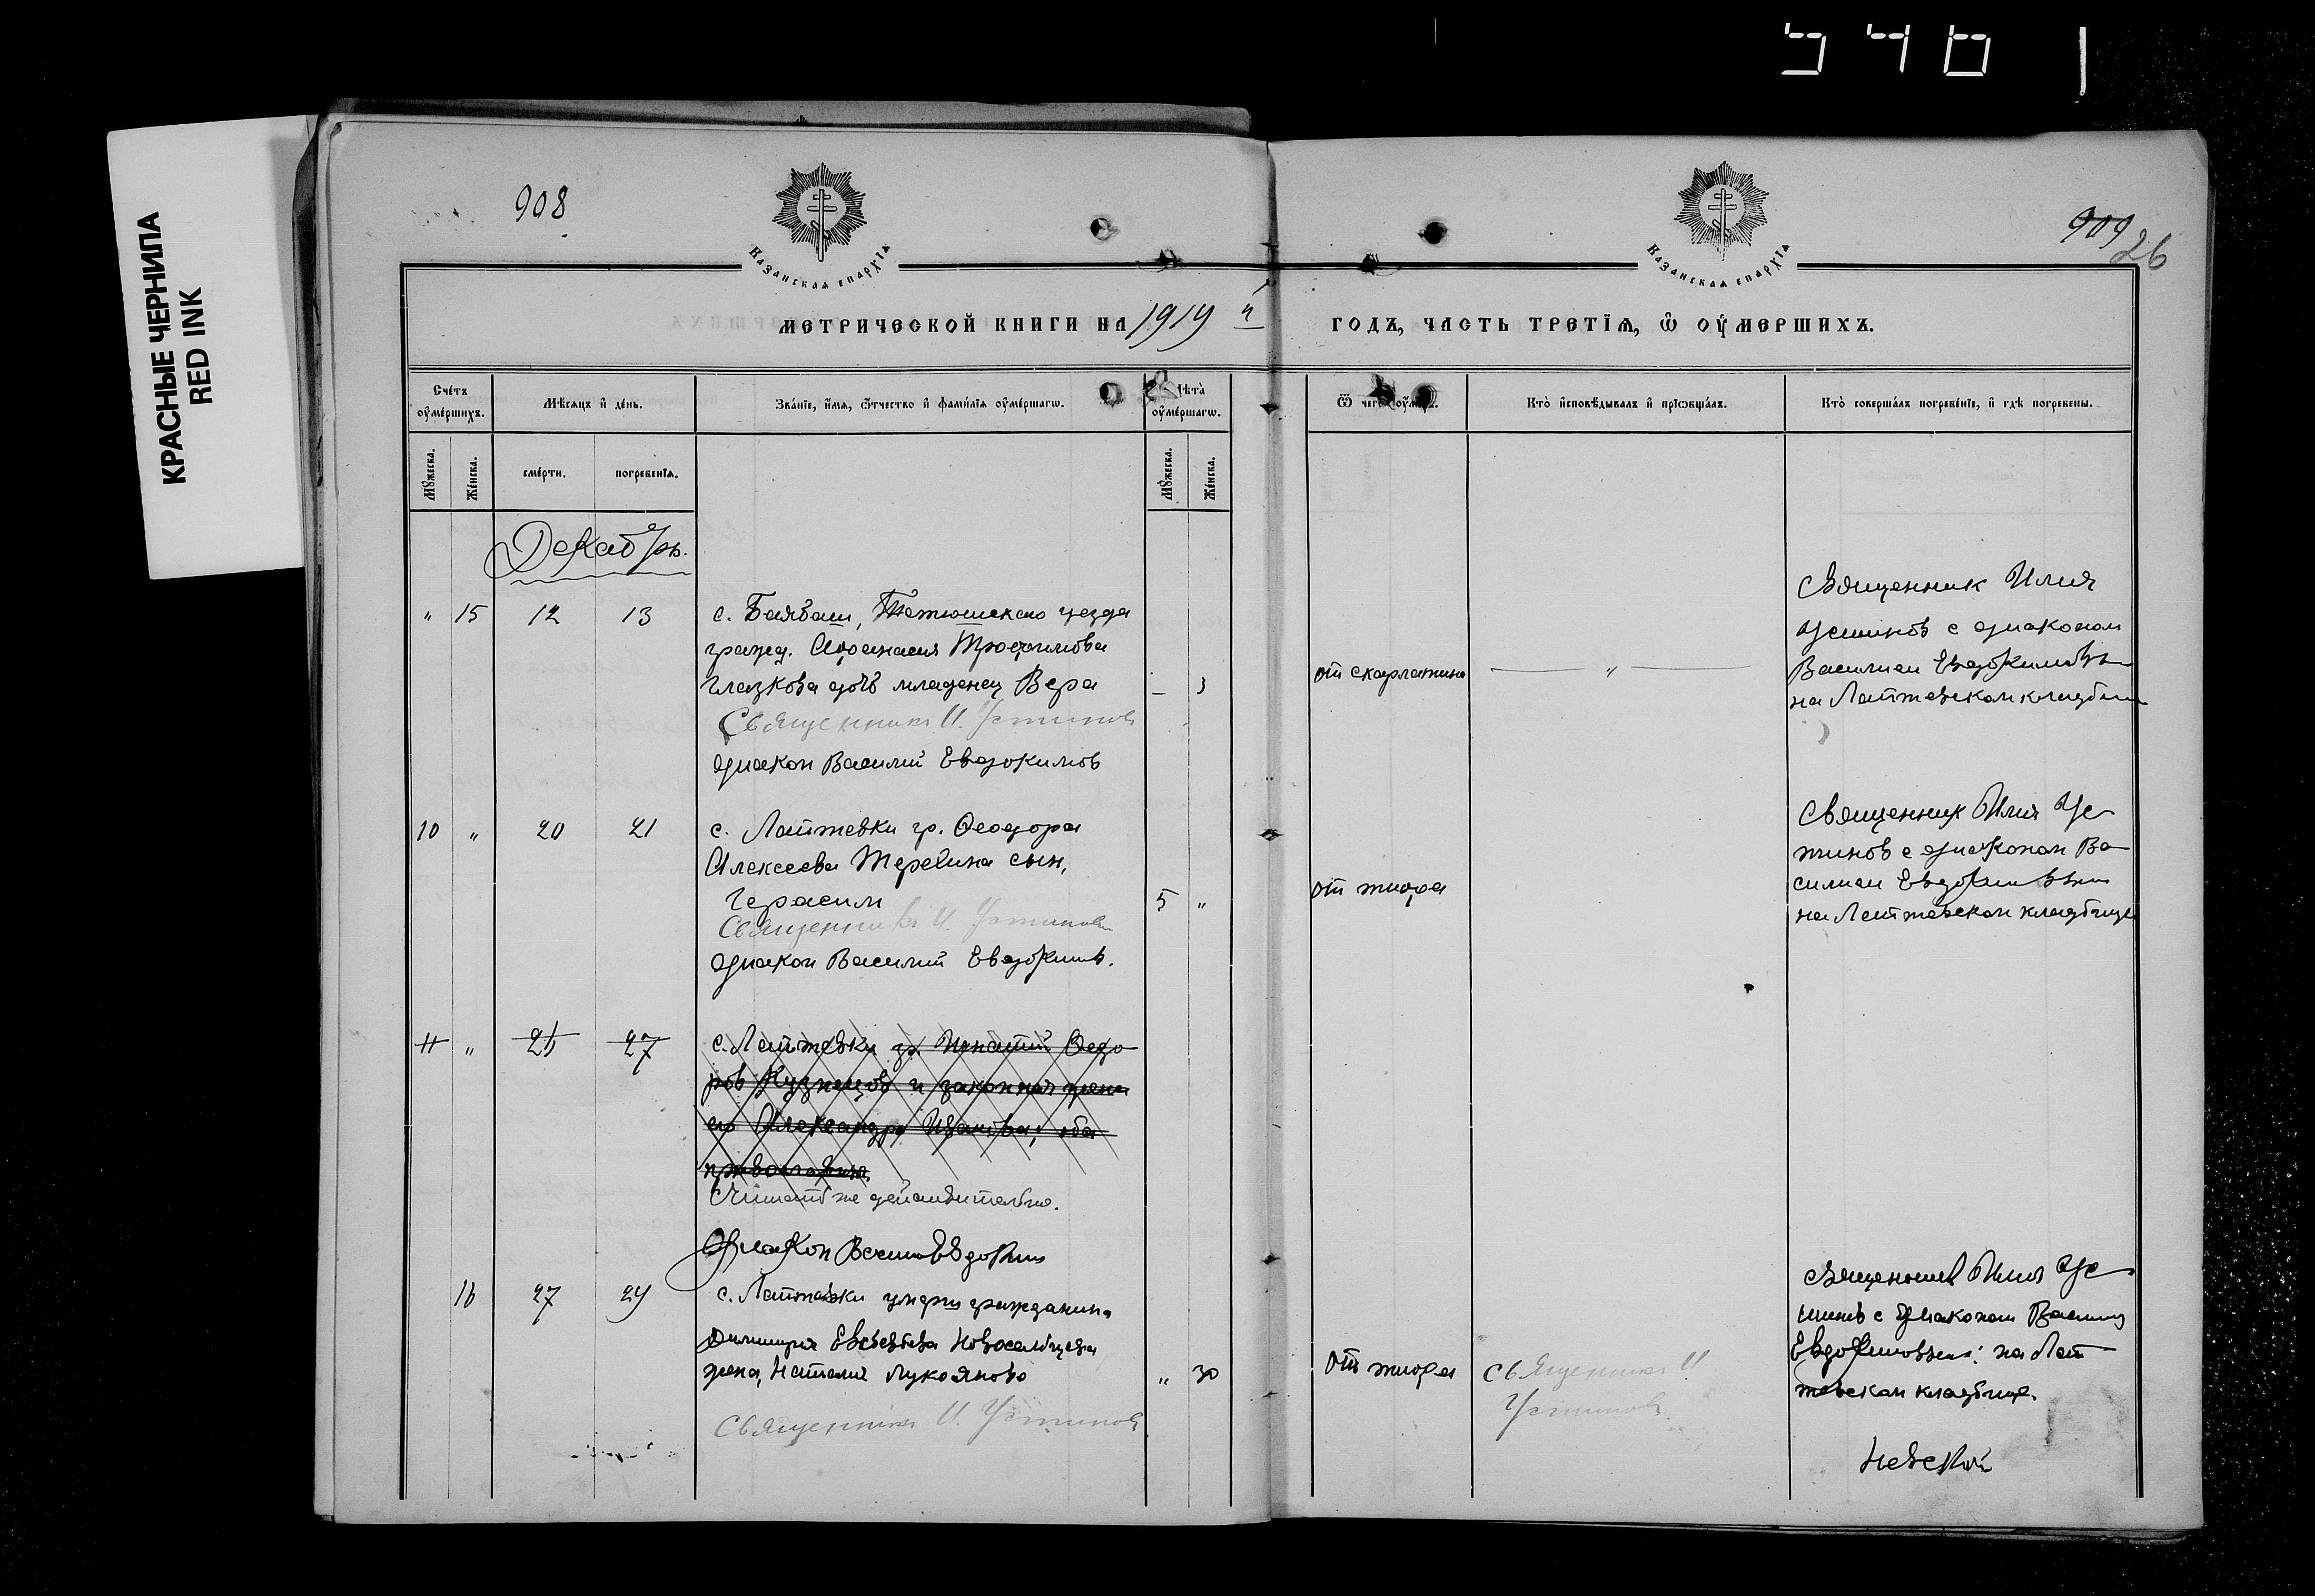 5401
КРАСНЫЕ ЧЕРНИЛА
RED INK
908
КАЗАНСКАЯ ЕПАРХІЯ
КАЗАНСКАЯ ЕПАРХІЯ
909
26
МЕТРИЧЕСКОЙ КНИГИ НА 1919 й
ГОДЪ, ЧАСТЬ ТРЕТІЯ, Ѿ ОУМЕРШИХЪ.
Счетъ оумершихъ.
Мѣсяцъ и день.
Званіе, имя, отчество и фамилія оумершагѡ.
Лѣта оумершагѡ.
Ѿ чегѡ оумеръ.
Кто исповѣдывалъ и пріобщалъ.
Кто совершалъ погребеніе, и гдѣ погребены.
Мужеска.
Женска.
смерти.
погребенія.
Мужеска.
Женска.
Декабрь.
" 15 12 13 с. Баябаш, Тетюшскаго уезда
гражд. Афанасия Трофимова
Глазкова дочь младенец Вера – 3
Священник И. Устинов
диакон Василий Евдокимов
от скарлатины
— " —
Священник Илия
Устинов с диаконом
Василием Евдокимовым
на Лаптевском кладбище
10 " 20 21 с. Лаптевки гр. Ѳеодора
Алексеева Теревина сын,
Герасим 5 "
Священник И. Устинов
диакон Василий Евдокимов.
от тифа
Священник Илия Ус
тинов с диаконом Ва
силием Евдокимовым
на Лаптевском кладбище
11 " 25 27 с. Лаптевки гр. Игнатий Ѳедо
ров Кузнецов и законная жена
его Александра Иванова, оба
православные.
Считать не действительно.
Диакон Василий Евдокимов
16 27 29 с. Лаптевки умерш гражданина
Димитрия Евсевьева Новосельцева
жена, Наталия Лукоянова " 30
Священник И. Устинов
От тифа
Священник И.
Устинов.
Священник Илия Ус
тинов с диаконом Василием
Евдокимовым: на Лап
тевском кладбище.